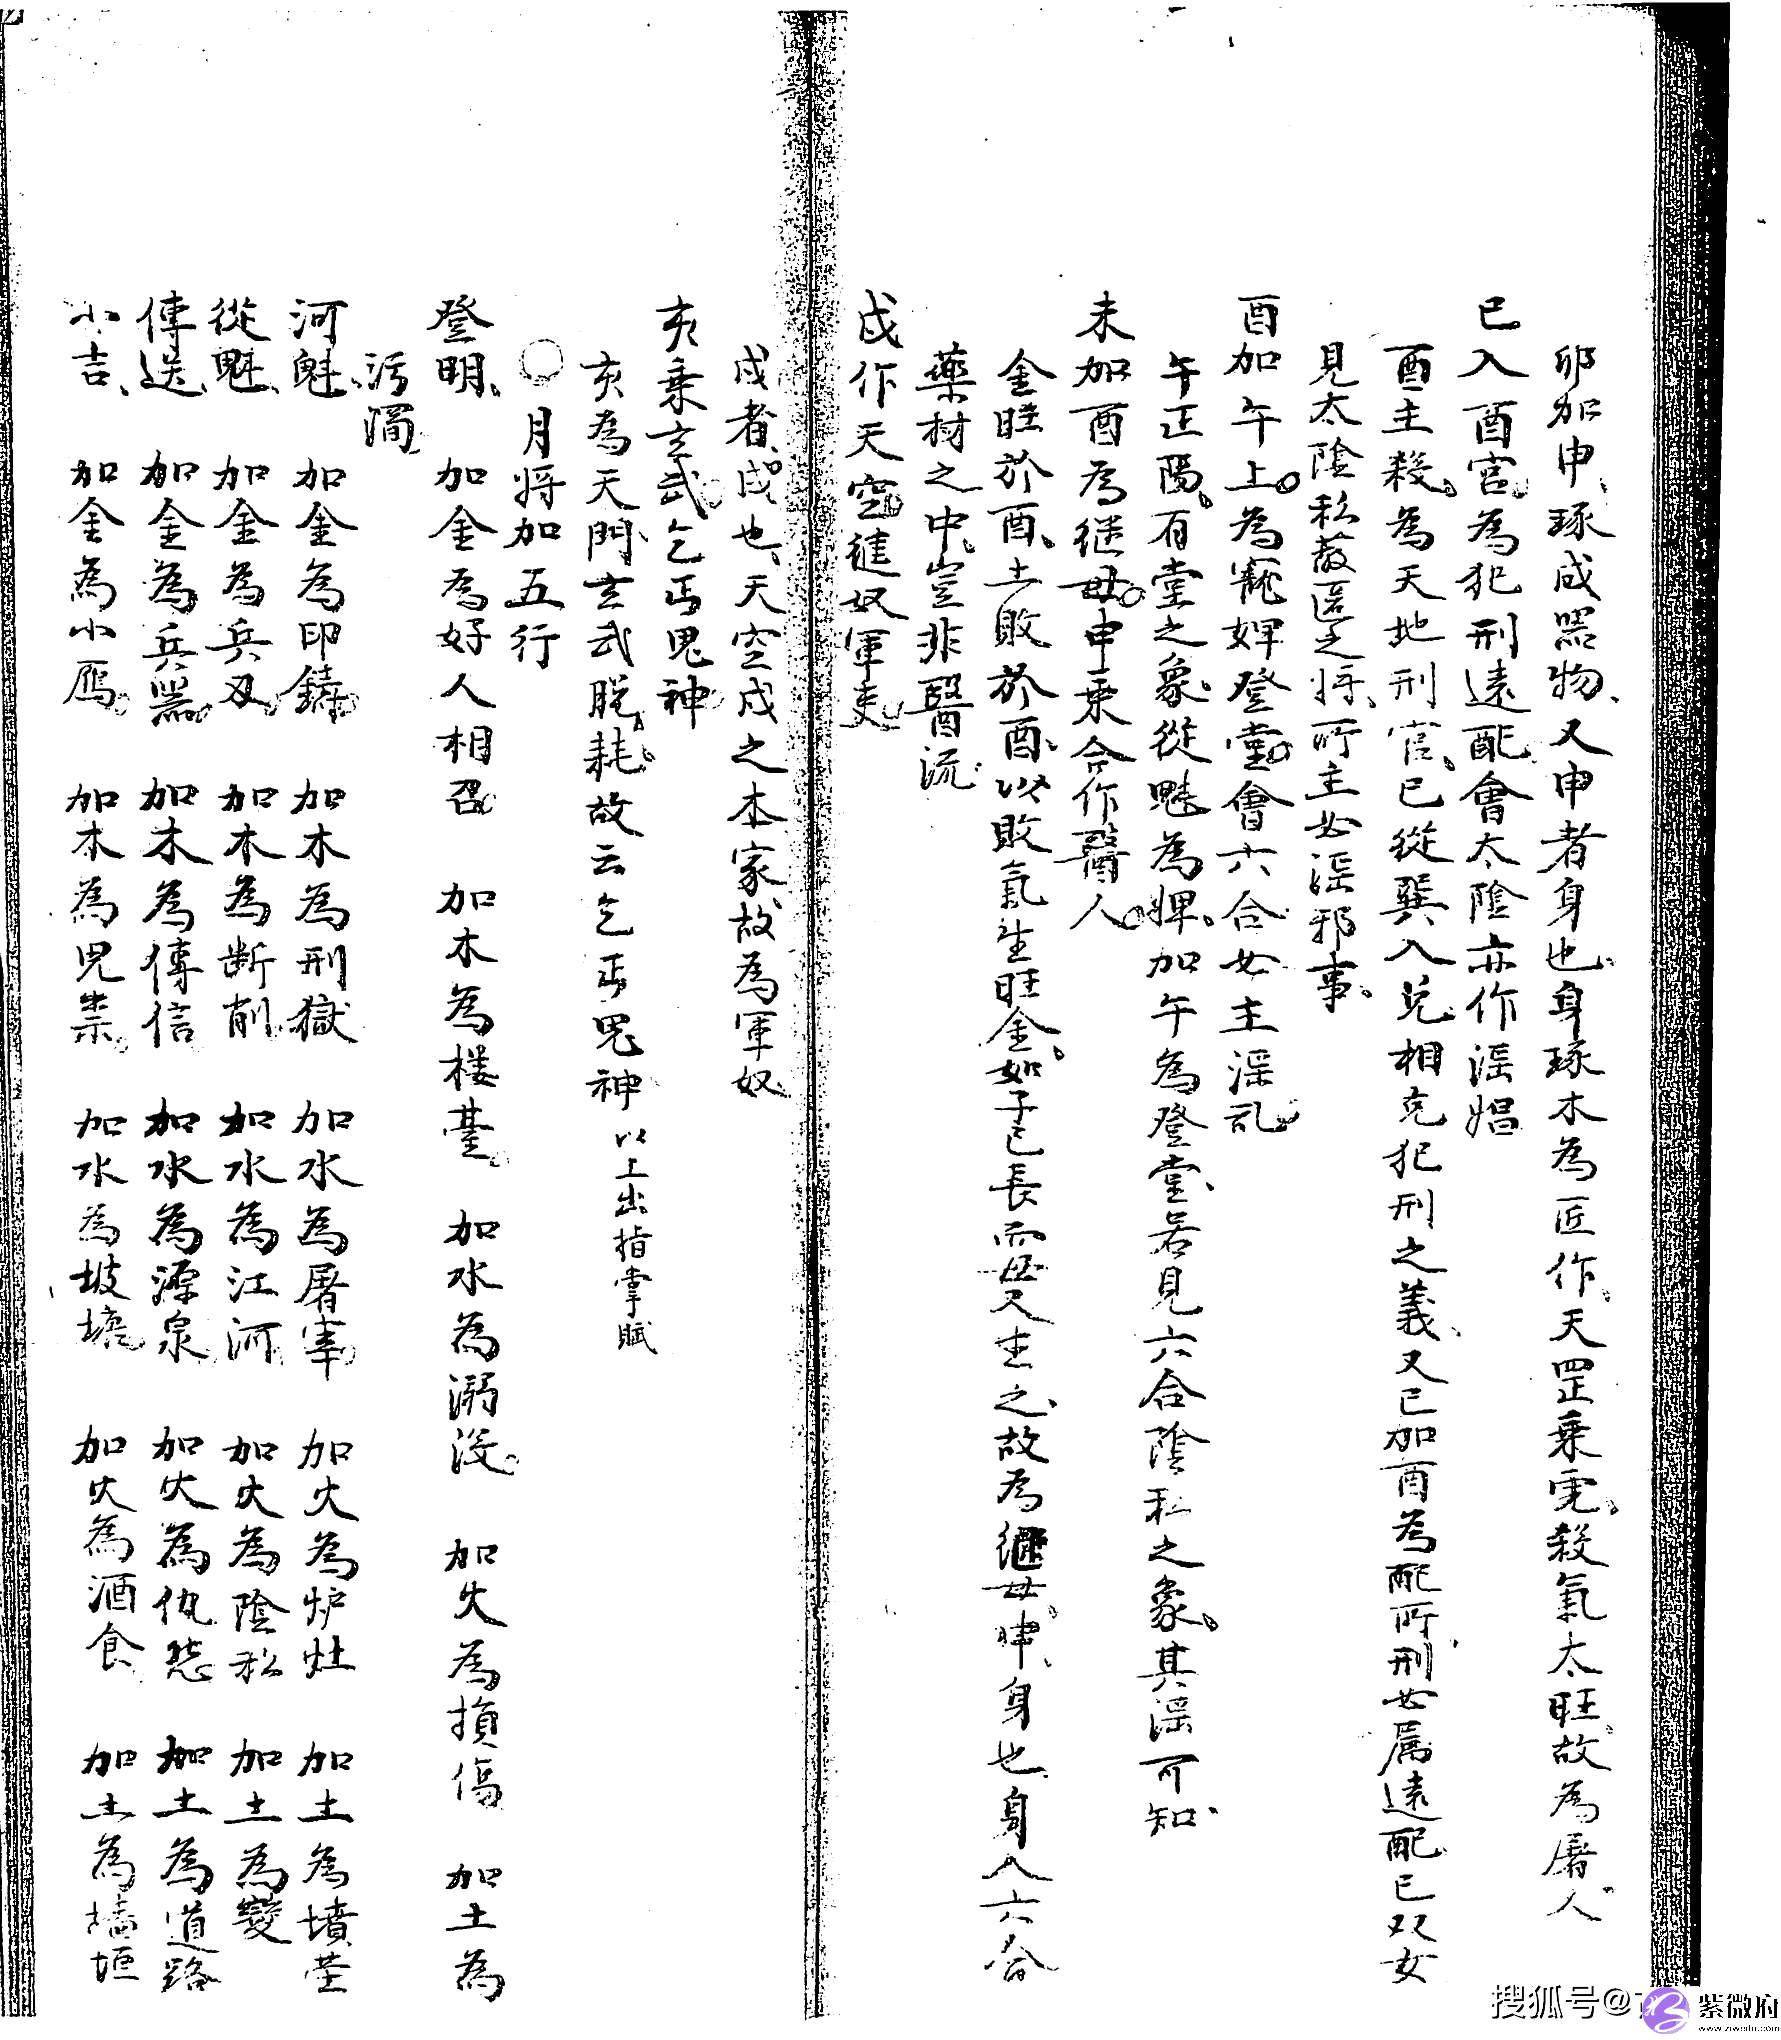 卯加申、琢成器物、又申者身也、身琢木為匠作、天罡乘虎、殺氣太旺、故為屠人、
巳入酉宮、為犯刑遠配、會太陰亦作淫娼
酉主殺、為天地刑官、巳從巽入兌相克犯刑之義、又巳加酉為配所、刑女属遠配、巳双女
見太陰私蔽匿之將、所主女淫邪事、
酉加午上、為寵婢登堂、會六合女主淫乱、
午正陽、有堂之象、從魁為婢、加午為登堂、若見六合陰私之象、其淫可知、
未加酉為継母、申乗合作醫人、
金旺於酉、土敗於酉、以敗氣生旺金、如子已長而母又生之、故為繼母、申、身也、身入六合
藥材之中、豈非醫流、
戌作天空、健奴軍吏、
戌者、戍也、天空戌之本家、故為軍奴、
亥乗玄武、乞丐鬼神、
亥為天門、玄武脱耗、故云乞丐鬼神 以上出指掌賦
○月将加五行
登明、 加金為好人相召、 加木為楼臺、 加水為溺没、 加火為損傷 加土為
污濁、
河魁、 加金為印鑄、 加木為刑獄 加水為屠宰、 加火為炉灶 加土為墳塋
從魁、 加金為兵刃、 加木為断削、 加水為江河 加火為陰私 加土為變
傳送、 加金為兵器、 加木為傳信 加水為源泉 加火為仇愁 加土為道路
小吉、 加金為小雁、 加木為鬼祟、 加水為坡塘、 加火為酒食 加土為墻垣
搜狐号@
紫微府
www.ziweifu.com